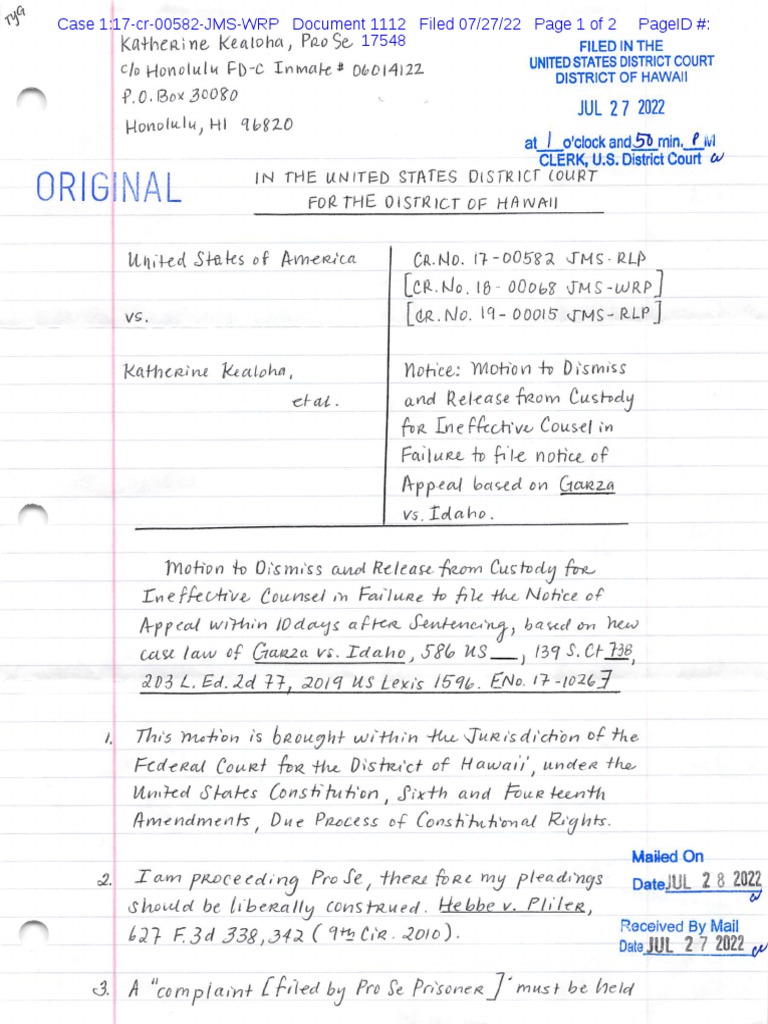 TYG
Case 1:17-cr-00582-JMS-WRP Document 1112 Filed 07/27/22 Page 1 of 2 PageID #: 17548
Katherine Kealoha, Pro Se
c/o Honolulu FD-C Inmate # 06014122
P.O. Box 30080
Honolulu, HI 96820
FILED IN THE
UNITED STATES DISTRICT COURT
DISTRICT OF HAWAII
JUL 27 2022
at 1 o'clock and 50 min. P M
CLERK, U.S. District Court
ORIGINAL
IN THE UNITED STATES DISTRICT COURT
FOR THE DISTRICT OF HAWAII
United States of America
vs.
Katherine Kealoha,
et al.
CR. No. 17-00582 JMS-RLP
[CR. No. 18-00068 JMS-WRP]
[CR. No. 19-00015 JMS-RLP]
Notice: Motion to Dismiss
and Release from Custody
for Ineffective Cousel in
Failure to file notice of
Appeal based on Garza
vs. Idaho.
Motion to Dismiss and Release from Custody for
Ineffective Counsel in Failure to file the Notice of
Appeal within 10 days after Sentencing, based on new
case law of Garza vs. Idaho, 586 US __, 139 S. Ct 738,
203 L. Ed. 2d 77, 2019 US Lexis 1596. [No. 17-1026]
1. This motion is brought within the Jurisdiction of the
Federal Court for the District of Hawaii, under the
United States Constitution, Sixth and Fourteenth
Amendments, Due Process of Constitutional Rights.
2. I am proceeding Pro Se, therefore my pleadings
should be liberally construed. Hebbe v. Pliler,
627 F. 3d 338, 342 (9th Cir. 2010).
Mailed On
Date JUL 28 2022
Received By Mail
Date JUL 27 2022
3. A "complaint [filed by Pro Se Prisoner]" must be held